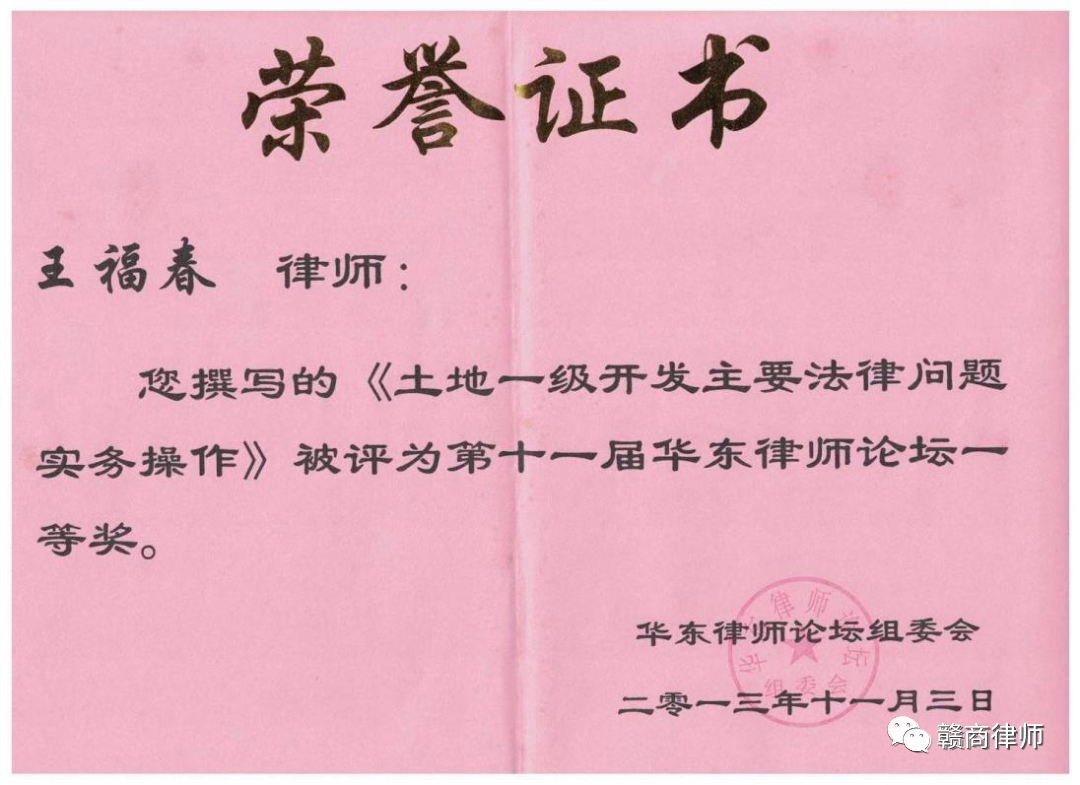 荣誉证书
王福春 律师：
您撰写的《土地一级开发主要法律问题
实务操作》被评为第十一届华东律师论坛一
等奖。
华东律师论坛组委会
二零一三年十一月三日
律师论坛
组委会
赣商律师